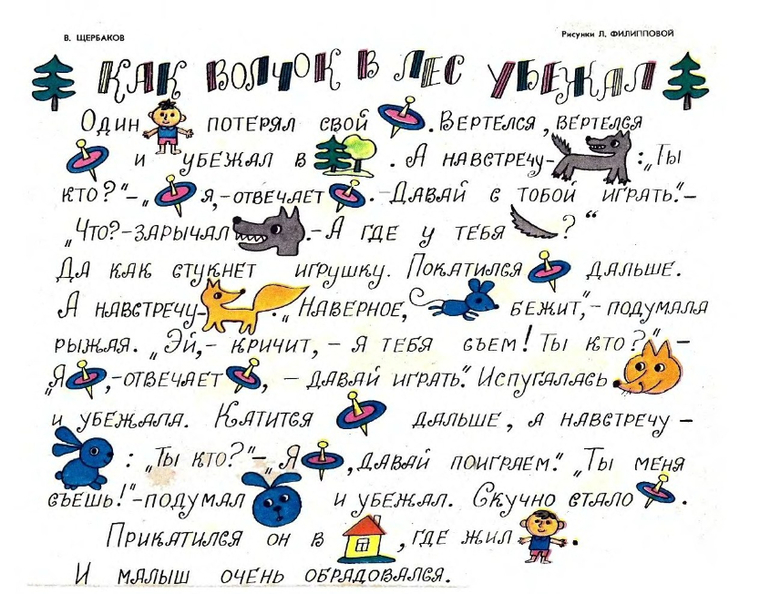 В. ЩЕРБАКОВ
Рисунки Л. ФИЛИППОВОЙ
КАК ВОЛЧОК В ЛЕС УБЕЖАЛ
Один потерял свой . Вертелся, вертелся
и убежал в . А навстречу- : „Ты
кто?"-„ я,-отвечает .-Давай с тобой играть".-
„Что?-зарычал .-А где у тебя ?"
Да как стукнет игрушку. Покатился дальше.
А навстречу- . „Наверное, бежит",-подумала
рыжая. „Эй,- кричит, - я тебя съем! Ты кто?" -
„Я ,-отвечает , - давай играть". Испугалась
и убежала. Катится дальше, а навстречу -
: „Ты кто?"-„Я , давай поиграем." „Ты меня
съешь!"-подумал и убежал. Скучно стало .
Прикатился он в , где жил .
И малыш очень обрадовался.